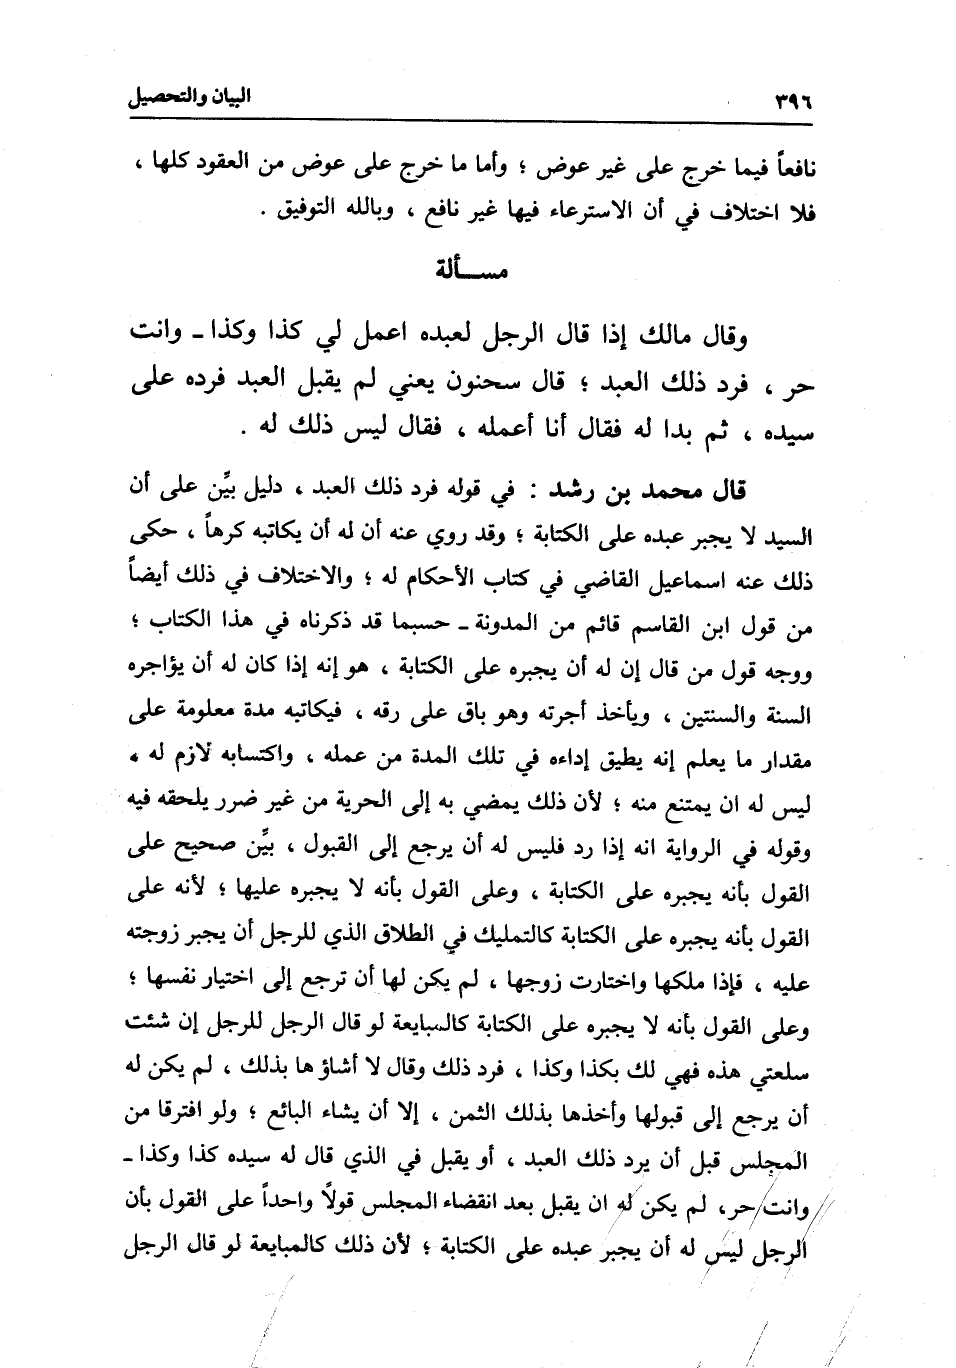 ٣٩٦ البيان والتحصيل
نافعاً فيما خرج على غير عوض ؛ وأما ما خرج على عوض من العقود كلها ،
فلا اختلاف في أن الاسترعاء فيها غير نافع ، وبالله التوفيق .
مســألة
وقال مالك إذا قال الرجل لعبده اعمل لي كذا وكذا ـ وانت
حر ، فرد ذلك العبد ؛ قال سحنون يعني لم يقبل العبد فرده على
سيده ، ثم بدا له فقال أنا أعمله ، فقال ليس ذلك له .
قال محمد بن رشد : في قوله فرد ذلك العبد ، دليل بيِّن على أن
السيد لا يجبر عبده على الكتابة ؛ وقد روي عنه أن له أن يكاتبه كرهاً ، حكى
ذلك عنه اسماعيل القاضي في كتاب الأحكام له ؛ والاختلاف في ذلك أيضاً
من قول ابن القاسم قائم من المدونة ـ حسبما قد ذكرناه في هذا الكتاب ؛
ووجه قول من قال إن له أن يجبره على الكتابة ، هو إنه إذا كان له أن يؤاجره
السنة والسنتين ، ويأخذ أجرته وهو باق على رقه ، فيكاتبه مدة معلومة على
مقدار ما يعلم إنه يطيق إداءه في تلك المدة من عمله ، واكتسابه لازم له ،
ليس له ان يمتنع منه ؛ لأن ذلك يمضي به إلى الحرية من غير ضرر يلحقه فيه
وقوله في الرواية انه إذا رد فليس له أن يرجع إلى القبول ، بيِّن صحيح على
القول بأنه يجبره على الكتابة ، وعلى القول بأنه لا يجبره عليها ؛ لأنه على
القول بأنه يجبره على الكتابة كالتمليك في الطلاق الذي للرجل أن يجبر زوجته
عليه ، فإذا ملكها واختارت زوجها ، لم يكن لها أن ترجع إلى اختيار نفسها ؛
وعلى القول بأنه لا يجبره على الكتابة كالمبايعة لو قال الرجل للرجل إن شئت
سلعتي هذه فهي لك بكذا وكذا ، فرد ذلك وقال لا أشاؤها بذلك ، لم يكن له
أن يرجع إلى قبولها وأخذها بذلك الثمن ، إلا أن يشاء البائع ؛ ولو افترقا من
المجلس قبل أن يرد ذلك العبد ، أو يقبل في الذي قال له سيده كذا وكذا ـ
وانت حر، لم يكن له ان يقبل بعد انقضاء المجلس قولاً واحداً على القول بأن
الرجل ليس له أن يجبر عبده على الكتابة ؛ لأن ذلك كالمبايعة لو قال الرجل